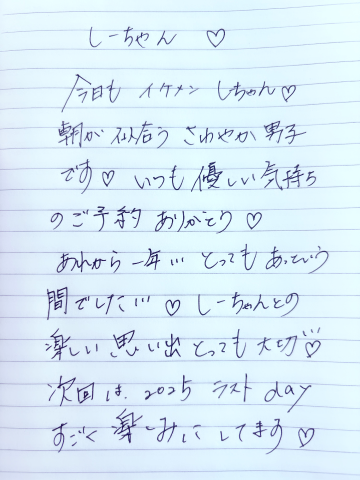 しーちゃん ♡
今日も イケメン しちゃん♡
朝が 似合う さわやか 男子
です♡ いつも 優しい 気持ち
のご予約 ありがとう ♡
あれから 一年… とっても あっという
間でした… ♡ しーちゃんとの
楽しい 思い出 とっても 大切♡
次回 は、2025 ラスト day
すごく 楽しみに してます ♡